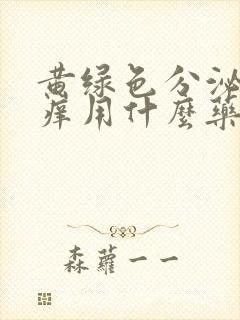 黄绿色分泌
痒用什麼藥
森蘿一一